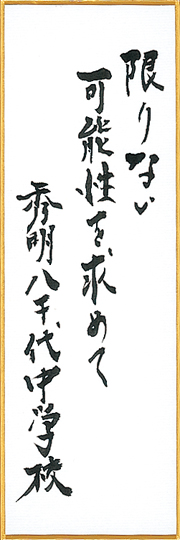 限りない
可能性を求めて
秀明八千代中学校